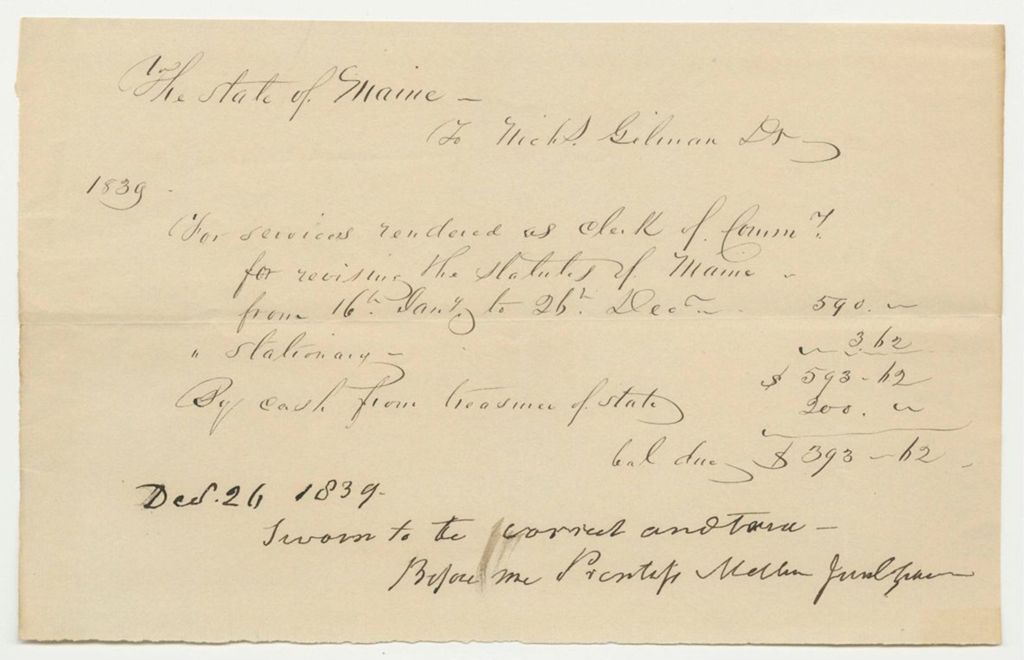 The State of Maine -
To Nichs. Gilman Dr
1839 -
For services rendered as clerk of Commrs.
for revising the statutes of Maine -
from 16th. Jany. to 26th. Decr. 590. "
" stationary - 3.62
$ 593-62
By cash from treasurer of state 200. "
bal due $ 393-62
Decr. 26 1839-
Sworn to be correct and true -
Before me Prentiss Mellen